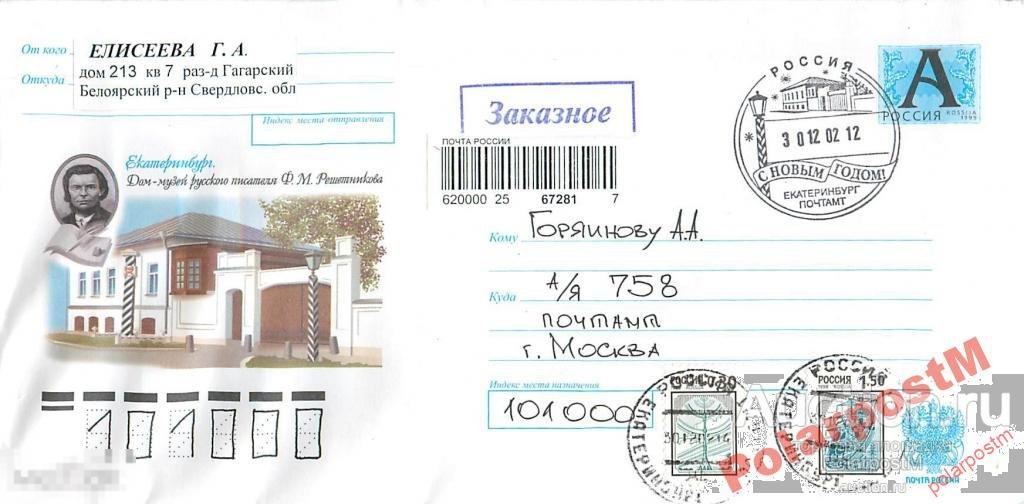 От кого ЕЛИСЕЕВА Г. А.
Откуда дом 213 кв 7 раз-д Гагарский
Белоярский р-н Свердловс. обл
Индекс места отправления
Екатеринбург.
Дом-музей русского писателя Ф. М. Решетникова
Заказное
ПОЧТА РОССИИ
620000 25 67281 7
РОССИЯ
30 12 02 12
С НОВЫМ ГОДОМ!
ЕКАТЕРИНБУРГ
ПОЧТАМТ
А
РОССИЯ
ROSSIJA
1999
Кому Горяинову А.А.
Куда а/я 758
почтамт
г. Москва
Индекс места назначения
101000
РОССИЯ
ЕКАТЕРИНБУРГ
РОССИЯ
РОССИЯ 1.50
ЕКАТЕРИНБУРГ
ПОЧТА РОССИИ
polarpostM
polarpostm